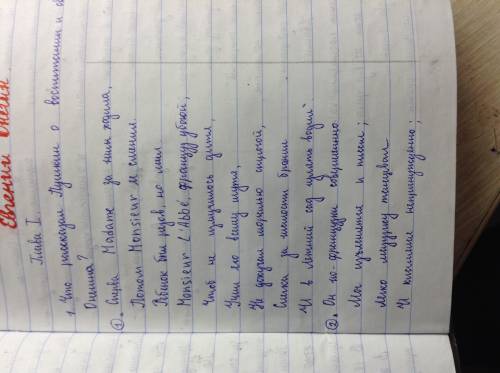 Евгений Онегин
Глава I
1. Что рассказал Пушкин о воспитании и об
Онегина?
①. Сперва Madame за ним ходила,
Потом Monsieur её сменил.
Ребёнок был резов, но мил.
Monsieur L'Abbé, француз убогой,
Чтоб не измучилось дитя,
Учил его всему шутя,
Не докучал моралью строгой,
Слегка за шалости бранил
И в Летний сад гулять водил
②. Он по-французски совершенно
Мог изъясняться и писал;
Легко мазурку танцевал
И кланялся непринуждённо;